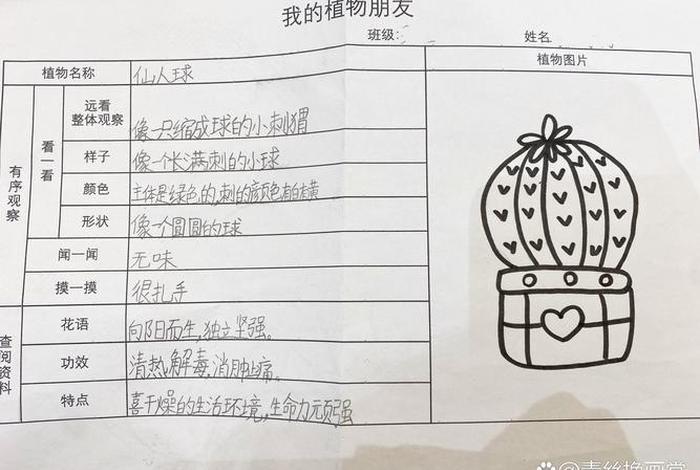 我的植物朋友
班级: 姓名
植物名称 仙人球 植物图片
有序观察
看一看
远看
整体观察 像一只缩成球的小刺猬
样子 像一个长满刺的小球
颜色 主体是绿色的,刺的颜色有白
形状 像个圆圆的球
闻一闻 无味
摸一摸 很扎手
查阅资料
花语 向阳而生,独立坚强。
功效 清热解毒,消肿止痛。
特点 喜干燥的生活环境,生命力顽强